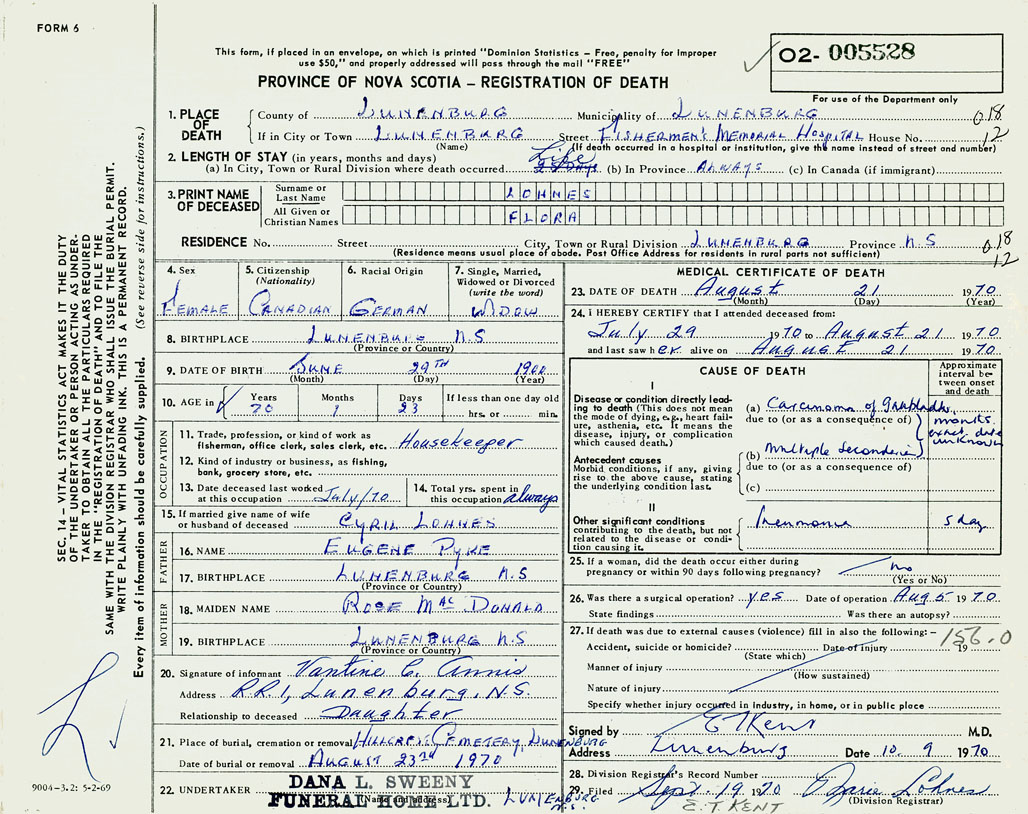 FORM 6
This form, if placed in an envelope, on which is printed "Dominion Statistics – Free, penalty for improper
use $50," and properly addressed will pass through the mail "FREE"
PROVINCE OF NOVA SCOTIA – REGISTRATION OF DEATH
O2- 005528
For use of the Department only
1. PLACE OF DEATH
County of LUNENBURG Municipality of LUNENBURG
018
If in City or Town LUNENBURG Street FISHERMEN'S MEMORIAL HOSPITAL House No.
12
(Name) (If death occurred in a hospital or institution, give the name instead of street and number)
2. LENGTH OF STAY (in years, months and days) Life
(a) In City, Town or Rural Division where death occurred (b) In Province ALWAYS (c) In Canada (if immigrant)
3. PRINT NAME OF DECEASED
Surname or Last Name LOHNES
All Given or Christian Names FLORA
RESIDENCE No. Street City, Town or Rural Division LUNENBURG Province N.S
018
12
(Residence means usual place of abode. Post Office Address for residents in rural parts not sufficient)
4. Sex
FEMALE
5. Citizenship
(Nationality)
CANADIAN
6. Racial Origin
GERMAN
7. Single, Married,
Widowed or Divorced
(write the word)
WIDOW
8. BIRTHPLACE LUNENBURG N.S
(Province or Country)
9. DATE OF BIRTH JUNE 29TH 1900
(Month) (Day) (Year)
10. AGE in
Years Months Days If less than one day old
70 1 23 hrs. or min.
OCCUPATION
11. Trade, profession, or kind of work as
fisherman, office clerk, sales clerk, etc. Housekeeper
12. Kind of industry or business, as fishing,
bank, grocery store, etc.
13. Date deceased last worked
at this occupation July/70
14. Total yrs. spent in
this occupation always
15. If married give name of wife
or husband of deceased CYRIL LOHNES
FATHER
16. NAME EUGENE PYKE
17. BIRTHPLACE LUNENBURG N.S
(Province or Country)
MOTHER
18. MAIDEN NAME ROSE MacDONALD
19. BIRTHPLACE LUNENBURG N.S
(Province or Country)
20. Signature of informant C. Annis
Address R.R.1, Lunenburg, N.S.
Relationship to deceased Daughter
21. Place of burial, cremation or removal HILLCREST CEMETERY, LUNENBURG
Date of burial or removal AUGUST 23rd 1970
22. UNDERTAKER DANA L. SWEENY
FUNERAL HOME LTD. LUNENBURG
N.S.
(Name and address)
MEDICAL CERTIFICATE OF DEATH
23. DATE OF DEATH August 21 1970
(Month) (Day) (Year)
24. I HEREBY CERTIFY that I attended deceased from:
July 29 1970 to August 21 1970
and last saw her alive on August 21 1970
CAUSE OF DEATH
Approximate
interval be-
tween onset
and death
I
Disease or condition directly lead-
ing to death (This does not mean
the mode of dying, e.g., heart fail-
ure, asthenia, etc. It means the
disease, injury, or complication
which caused death.)
(a) Carcinoma of
due to (or as a consequence of)
months
exact date
unknown
Antecedent causes
Morbid conditions, if any, giving
rise to the above cause, stating
the underlying condition last.
(b) Multiple Secondaries
due to (or as a consequence of)
(c)
II
Other significant conditions
contributing to the death, but not
related to the disease or condi-
tion causing it.
Pneumonia 5 day
25. If a woman, did the death occur either during
pregnancy or within 90 days following pregnancy? no
(Yes or No)
26. Was there a surgical operation? yes Date of operation Aug 5 1970
State findings Was there an autopsy?
27. If death was due to external causes (violence) fill in also the following: –
156.0
Accident, suicide or homicide? Date of injury 19
(State which)
Manner of injury
(How sustained)
Nature of injury
Specify whether injury occurred in industry, in home, or in public place
Signed by E T Kent M.D.
Address Lunenburg Date 10 9 1970
28. Division Registrar's Record Number
29. Filed Sept. 19 1970 Marie Lohnes
(Division Registrar)
E.T. KENT
SEC. 14 – VITAL STATISTICS ACT MAKES IT THE DUTY
OF THE UNDERTAKER OR PERSON ACTING AS UNDER-
TAKER TO OBTAIN ALL THE PARTICULARS REQUIRED
IN THE "REGISTRATION OF DEATH" AND TO FILE THE
SAME WITH THE DIVISION REGISTRAR WHO SHALL ISSUE THE BURIAL PERMIT.
WRITE PLAINLY WITH UNFADING INK. THIS IS A PERMANENT RECORD.
Every item of information should be carefully supplied. (See reverse side for instructions.)
9004-3.2: 5-2-69